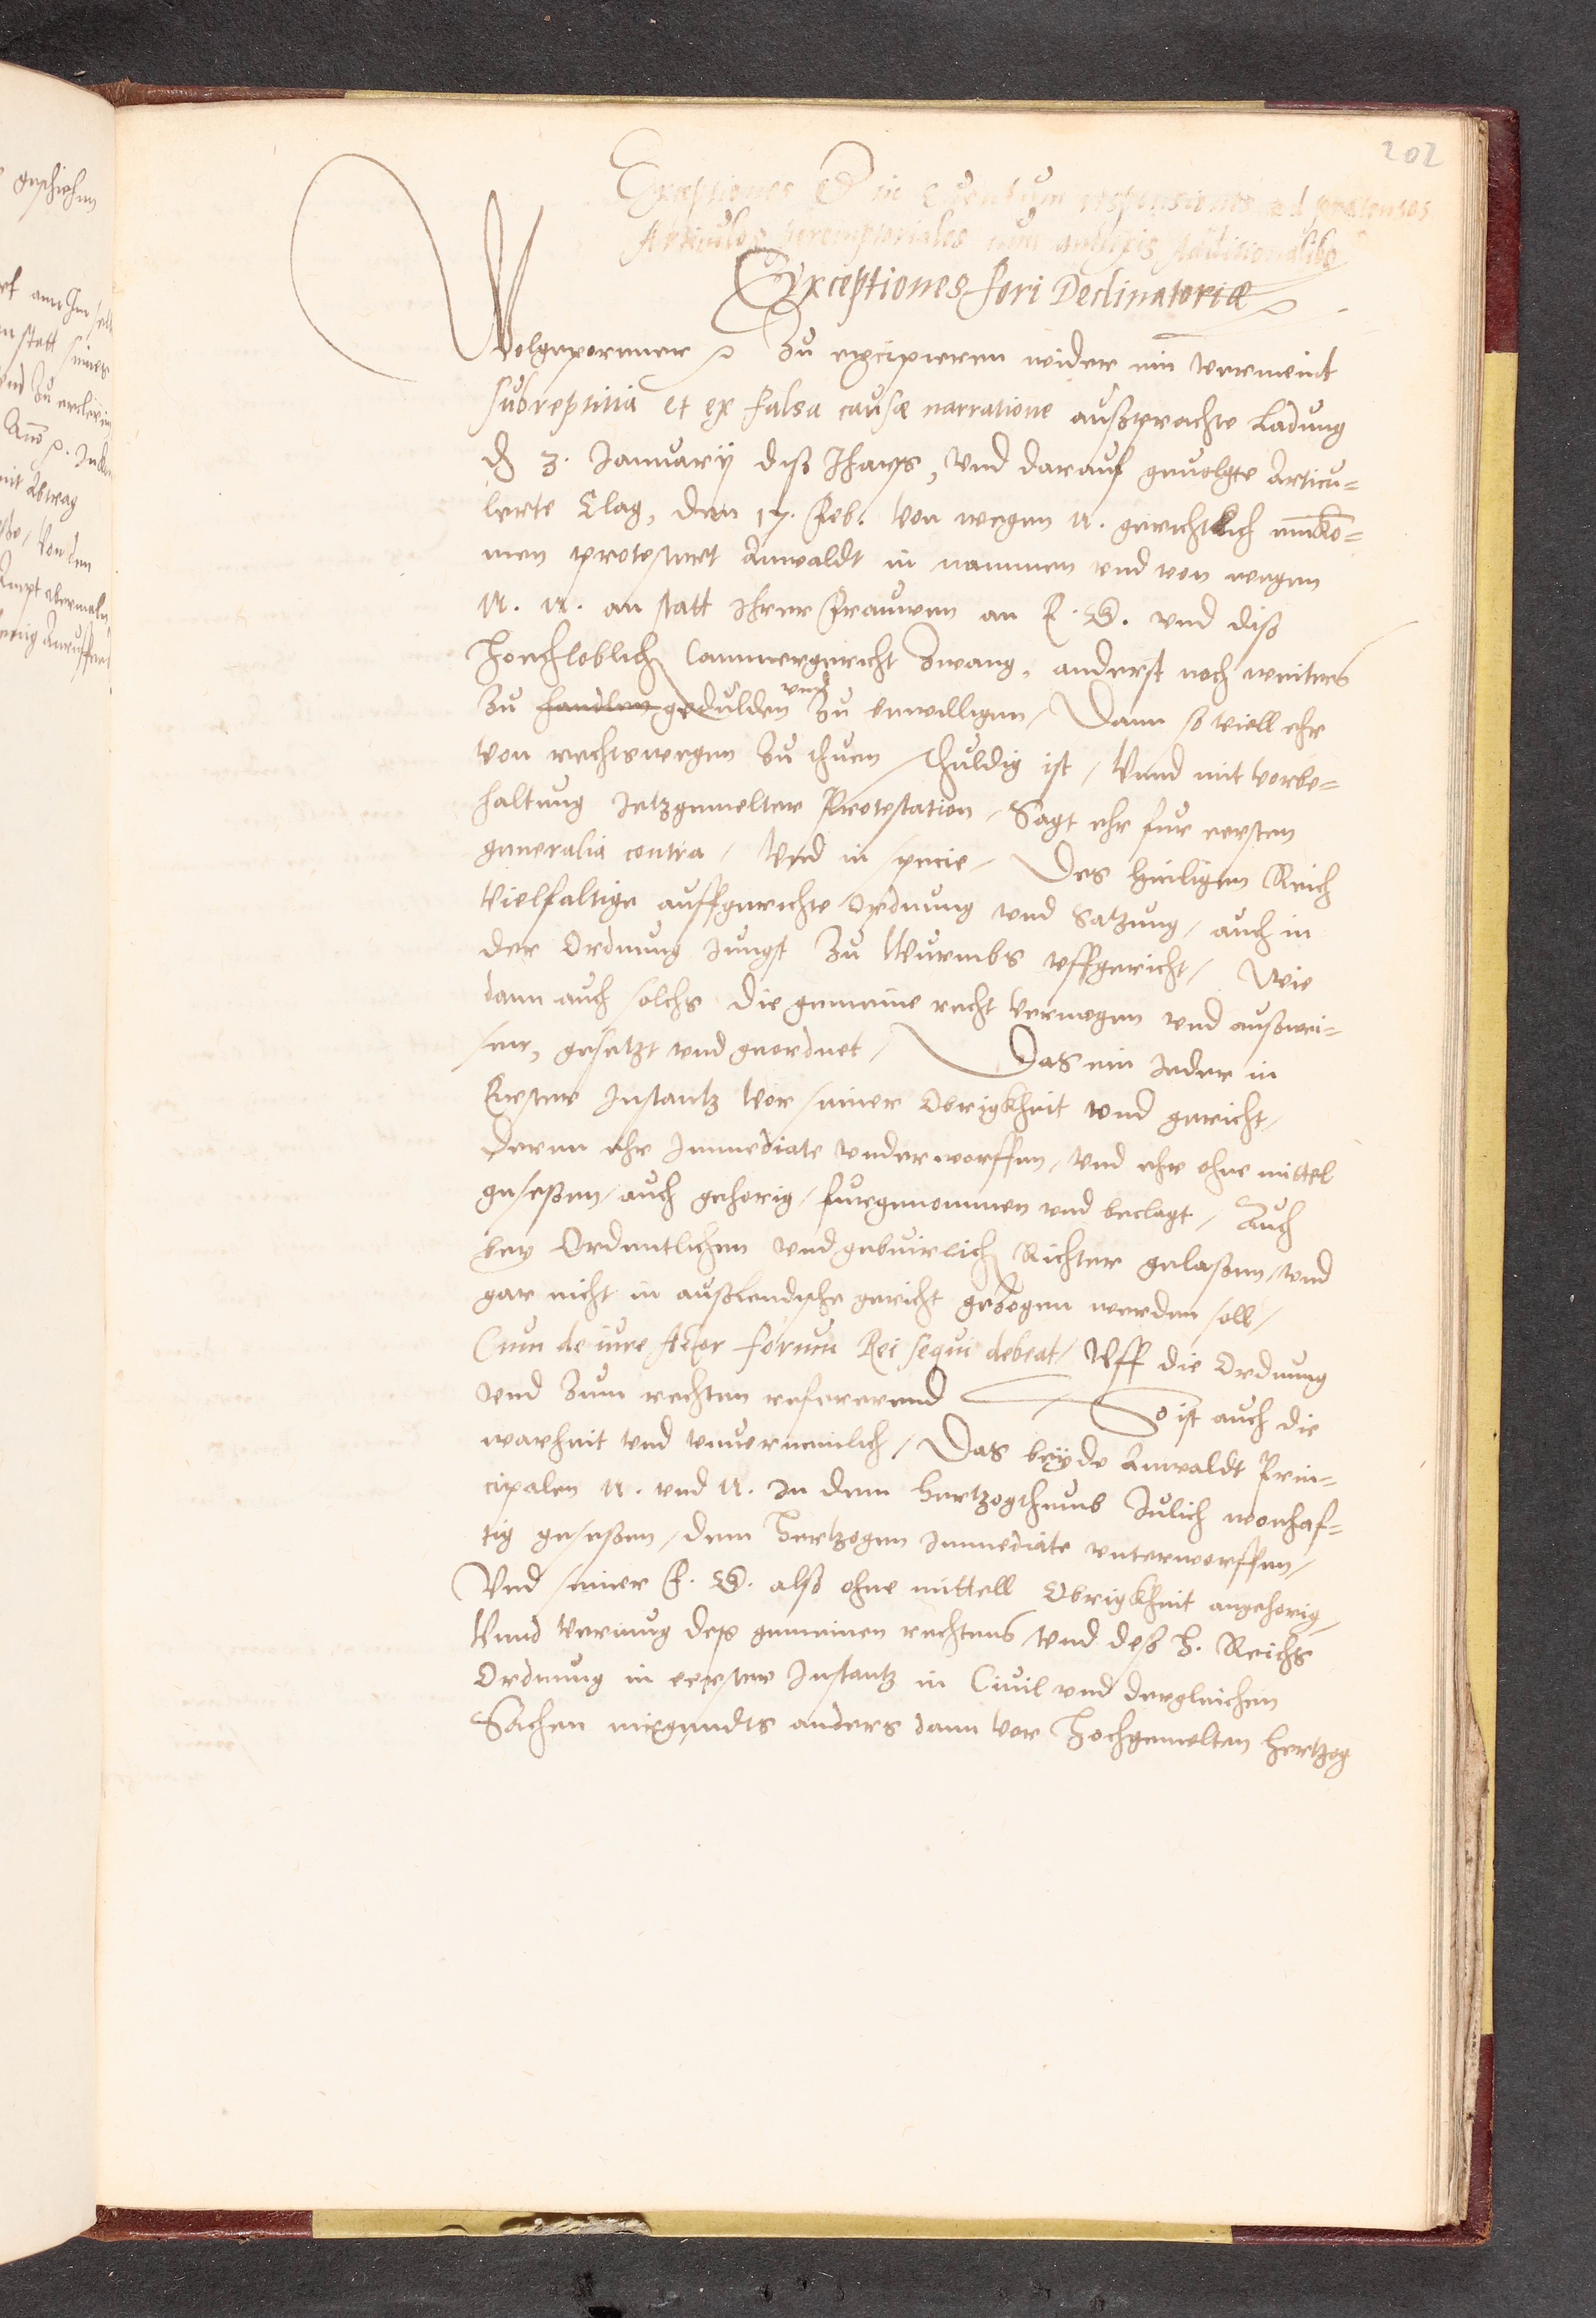 202
Exceptiones et in eventum responsiones ad praetensos
Articulos peremptoriales cum annexis Additionalibus
Exceptiones fori Declinatoriæ
Wolgeporenner Zu excipieren wider ein vermeint
subreptitia et ex falsa causæ narratione außprachte Ladung
den 3. January diß Jhars, Und darauf gevolgte Articu-
lerte Clag, den 17. Feb. von wegen N. gerichtlich einko-
men protestiert Anwaldt in nammen und von wegen
N. N. an statt Ihrer Frauwen an E. G. und diß
Hochloblich Cammergericht Zwang, anderst noch weiters
Zu handlen gedulden und Zu bewilligen, Dann so viell ehr
Von rechtswegen Zu thuen schuldig ist, Unnd mit vorbe-
haltung Jetzgemelter Protestation, Sagt ehr fur ersten
generalia contra, Und in specie, Des Heiligen Reich
Vielfaltige auffgerichte Ordnung und Satzung, auch in
der Ordnung Jungst Zu Wurmbs uffgericht, Wie
dann auch solchs die gemeine recht vermogen und außwei-
sen, gesetzt und geordnet, Das ein Jeder in
Erster Instantz Vor seiner Obrigkheit und gericht,
deren ehr Immediate underworffen, und ehr ohne mittel
geseßen, auch gehorig, furgenommen und beclagt, Auch
bey Ordentlichen und geburlich Richter gelaßen, und
gar nicht in außlendische gericht gezogen werden soll,
Cum de iure Actor forum Rei sequi debeat, Uff die Ordnung
und Zum rechten refererend So ist auch die
warheit und unverneinlich, Das beyde Anwaldt Prin-
cipalen N. und N. In dem Hertzogthumb Julich wonhaf-
tig geseßen, dem Hertzogen Immediate unterworffen,
Und seiner F. G. alß ohne mittell Obrigkheit angehorig,
Unnd vermug des gemeinen rechtens und deß H. Reichs
Ordnung in erster Instantz in Civil und dergleichen
Sachen nirgendts anders dann vor Hochgemelten Hertzog